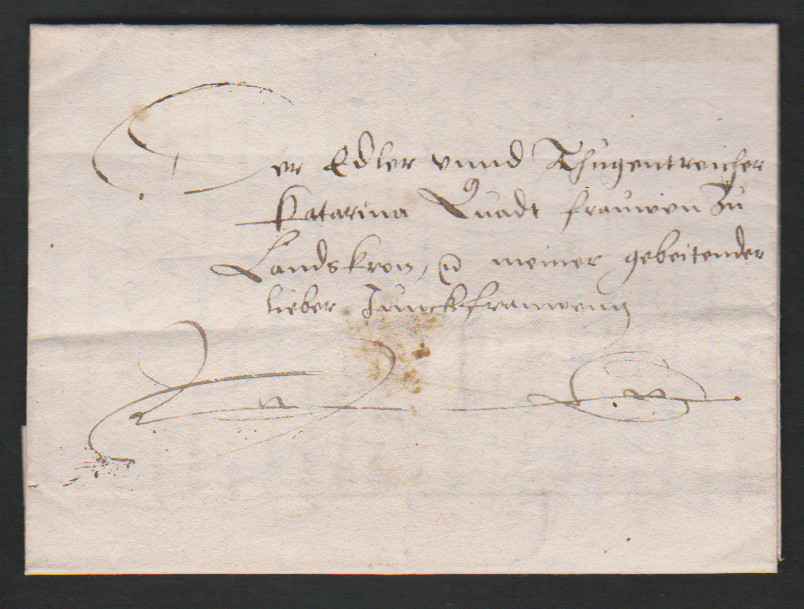 Der Edler vnnd Thugentreicher
Katarina Quadt frauwen zu
Landskron, u meiner gebeitender
lieber Junckfrauwenn